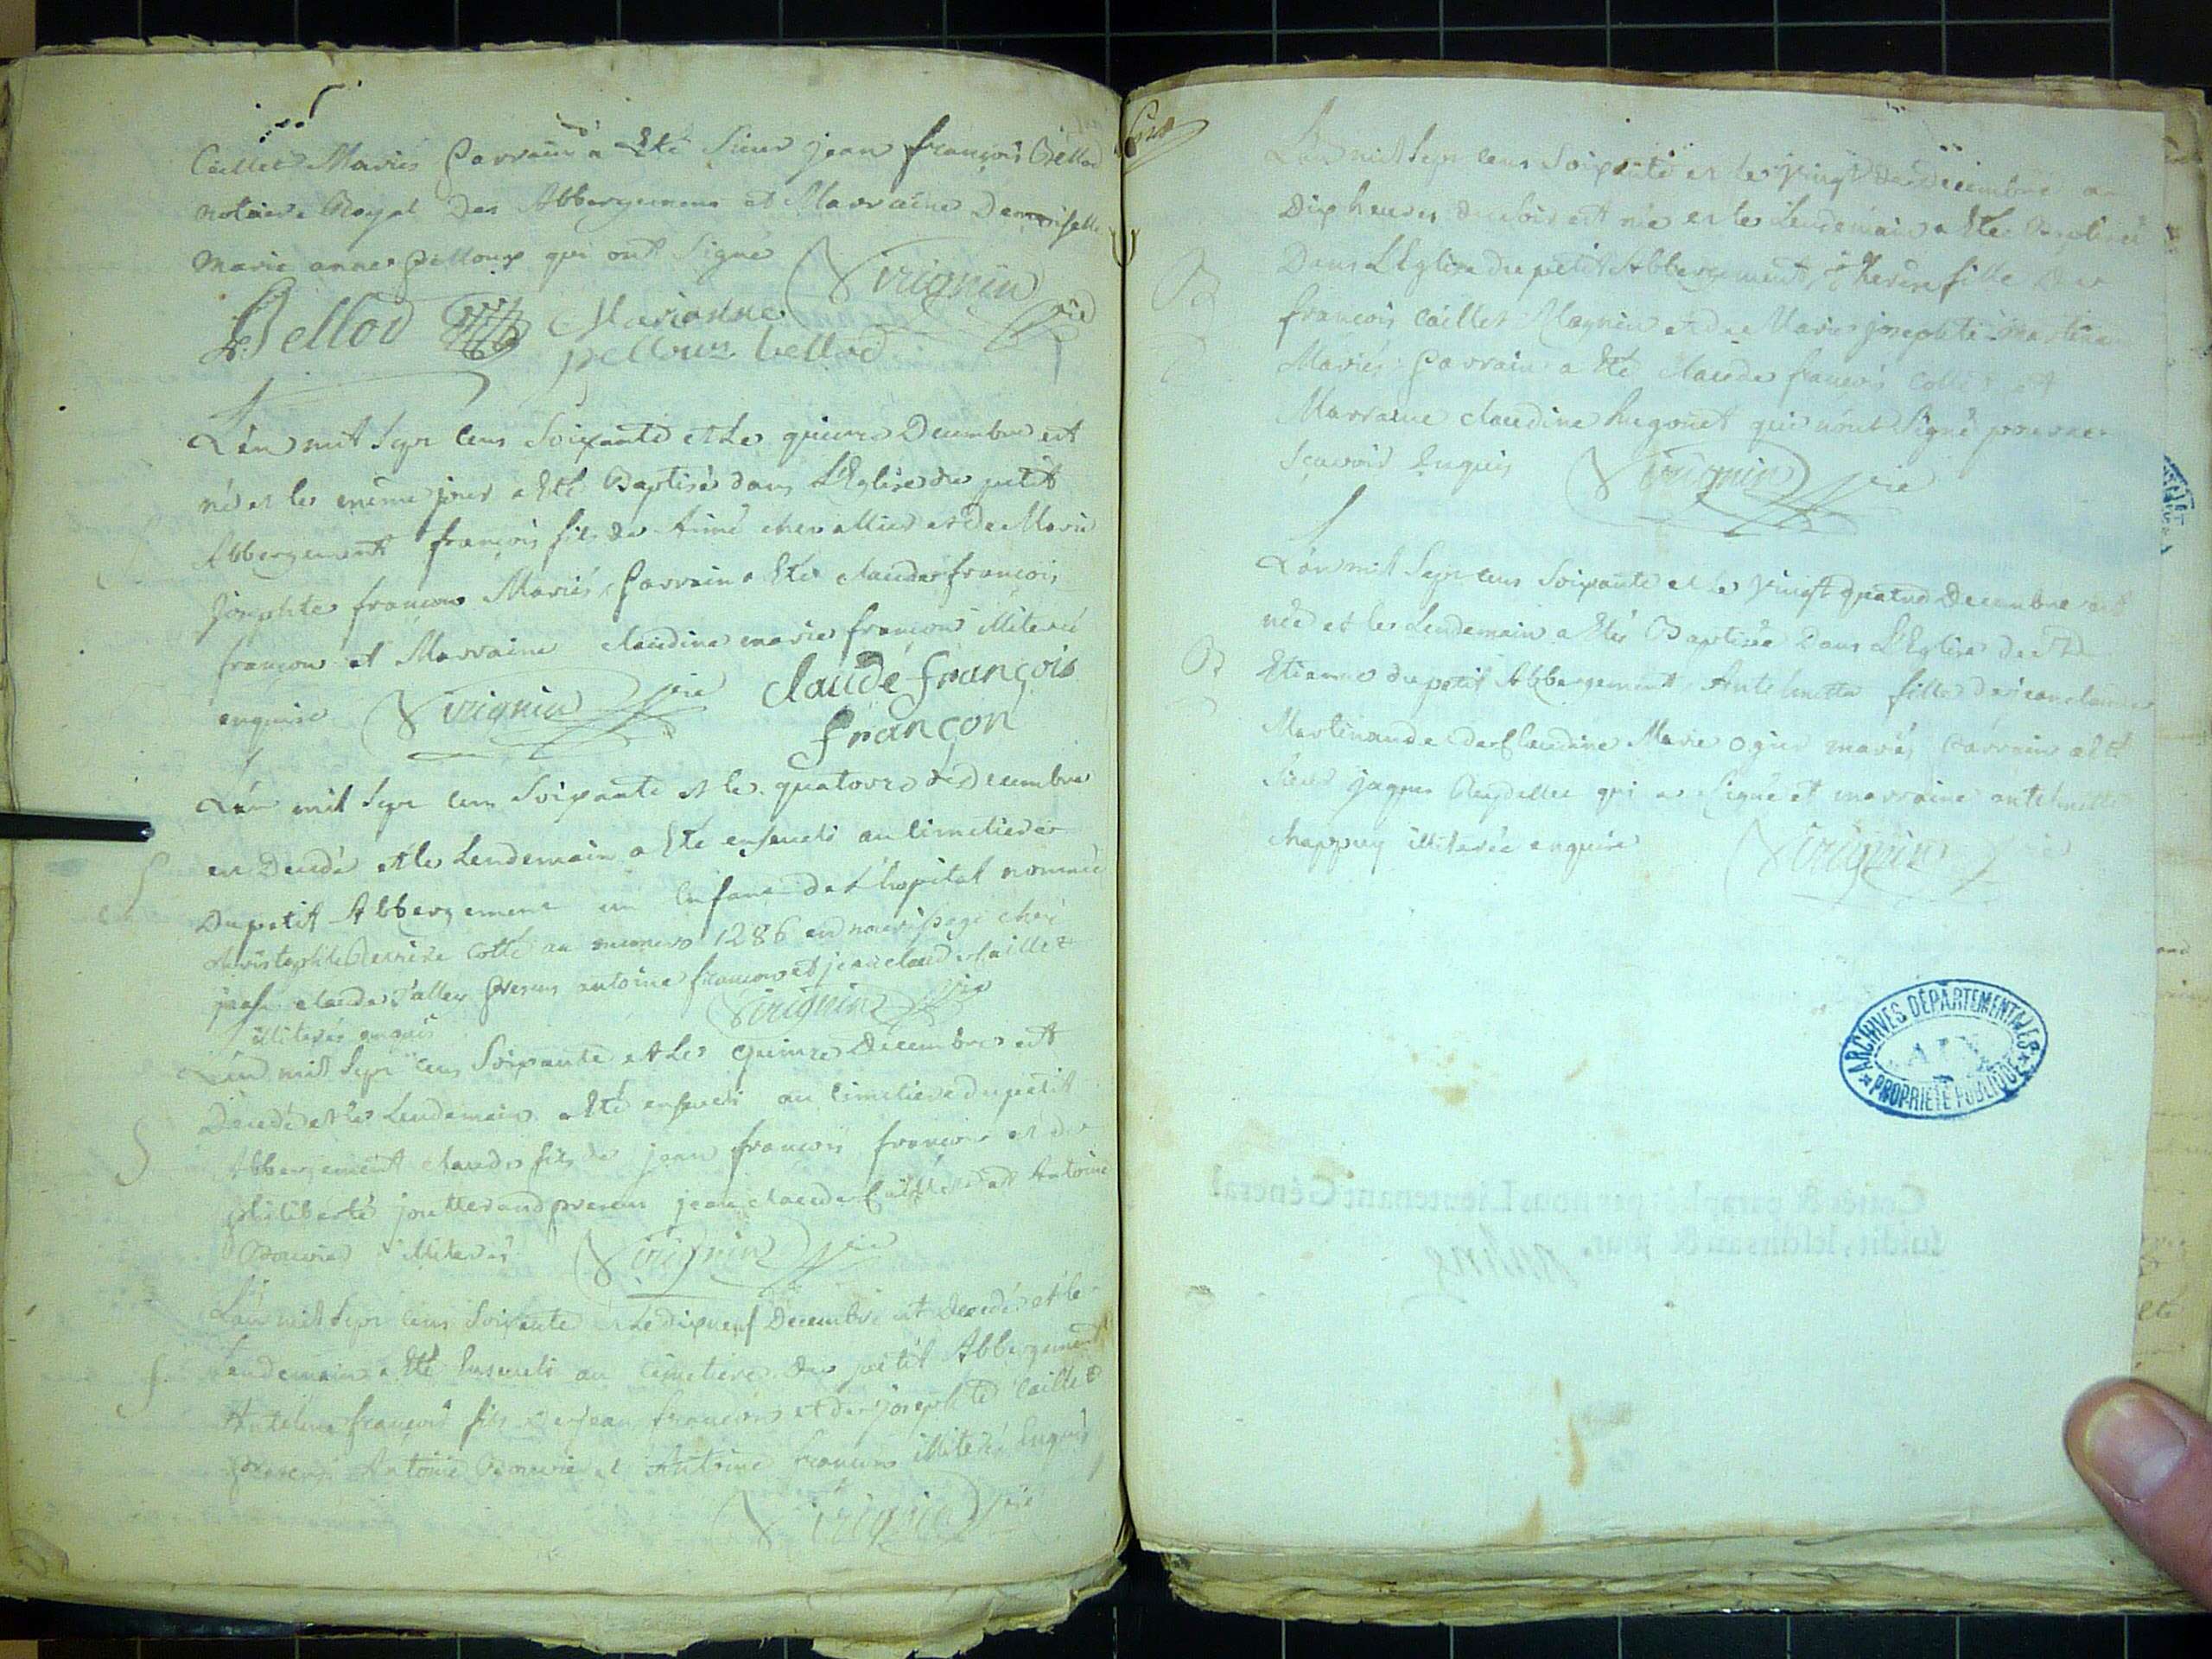 Caillet Mariés Parrain a Eté Sieur jean françois Bellod
notaire Royal des Abbergemens et Marraine Demoiselle
Marie anne pelloux qui ont Signé Virignin vic
Bellod Marianne
pelloux bellod
L'an mil Sept Cens Soixante et Le quinze Decembre est
né et le même jour a Eté Baptisé dans L'Eglise du petit
Abbergement françois fils de Aimé chevallier et de Marie
Josephte françon Mariés, Parrain a Eté claude françois
françon et Marraine claudine marie françon illiterée
enquise Virignin vic claude françois
françon
L'an mil Sept Cens Soixante et le quatorze de Decembre
est Decedé et le Lendemain a Eté enseveli au cimetiere
Du petit Abbergement un Enfant de L'hopital nommé
christophle cotté au numero 1286 en nourissage ché
jean claude presens antoine françon et jean claude Caillet
illiterés enquis Virignin vic
L'an mil Sept cens Soixante et Le quinze Decembre est
Decedé et le Lendemain a Eté enseveli au cimetiere du petit
Abbergement claude fils de jean françois françon et de
philiberte jutterand presens jean claude Caillet et Antoine
Bouvier illiterés Virignin vic
L'an mil Sept cens Soixante et Le dixneuf Decembre est decedé et le
Lendemain a Eté Enseveli au Cimetiere du petit Abbergement
Antelme françon fils de jean françon et de josephte Caillet
presens Antoine Bouvier et Antoine françon illiterés Enquis
Virignin vic
L'an mil Sept cens Soixante et le vingt de Decembre a
Dix heures du soir est née et le Lendemain a Eté Baptisée
B
Dans L'Eglise du petit Abbergement, Therese fille de
françois Caillet Magnin et de Marie josephte Martinand
Mariés Parrain a Eté claude françois Collet et
Marraine claudine hugonet qui n'ont Signé pour ne
Scavoir Enquis Virignin vic
L'an mil Sept cens Soixante et le vingt quatre Decembre est
née et le Lendemain a Eté Baptisée Dans L'Eglise de St
B
Etienne du petit Abbergement Antelmette fille de jean claude
Martinand et de Claudine Marie ogier mariés Parrain a Eté
Sieur jaques qui a Signé et marraine antelmette
chappuy illiterée enquise Virignin vic
ARCHIVES DÉPARTEMENTALES
AIN
PROPRIÉTÉ PUBLIQUE